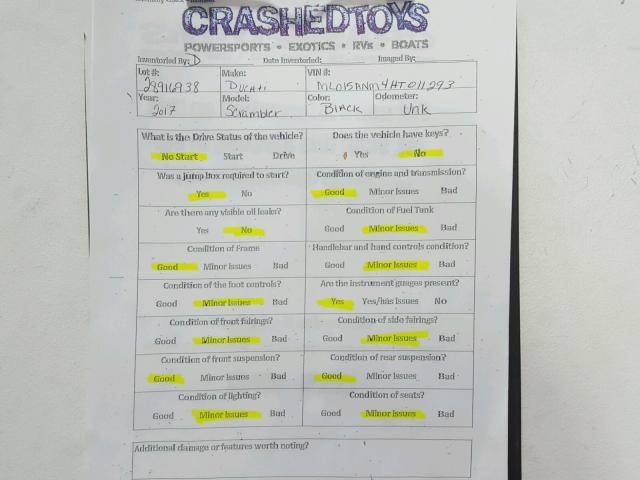 CRASHEDTOYS
POWERSPORTS • EXOTICS • RVs • BOATS
Inventoried By: D Date Inventoried: Imaged By:
Lot #: Make: VIN #:
28916938 Ducati ML015AN04HT011293
Year: Model: Color: Odometer:
2017 Scrambler Black Unk
What is the Drive Status of the vehicle? Does the vehicle have keys?
No Start Start Drive Yes No
Was a jump box required to start? Condition of engine and transmission?
Yes No Good Minor Issues Bad
Are there any visible oil leaks? Condition of Fuel Tank
Yes No Good Minor Issues Bad
Condition of Frame Handlebar and hand controls condition?
Good Minor Issues Bad Good Minor Issues Bad
Condition of the foot controls? Are the instrument guages present?
Good Minor Issues Bad Yes Yes/has issues No
Condition of front fairings? Condition of side fairings?
Good Minor Issues Bad Good Minor Issues Bad
Condition of front suspension? Condition of rear suspension?
Good Minor Issues Bad Good Minor Issues Bad
Condition of lighting? Condition of seats?
Good Minor Issues Bad Good Minor Issues Bad
Additional damage or features worth noting?